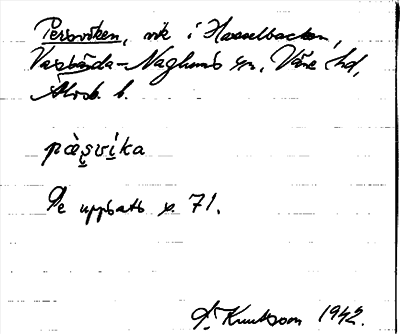 Persviken, vik i Hasselbacken,
Vassända-Naglums sn, Väne hd,
Älvsb. l.
pàs̬vi̱ka
Se uppsats s. 71.
A. Knutsson 1942.